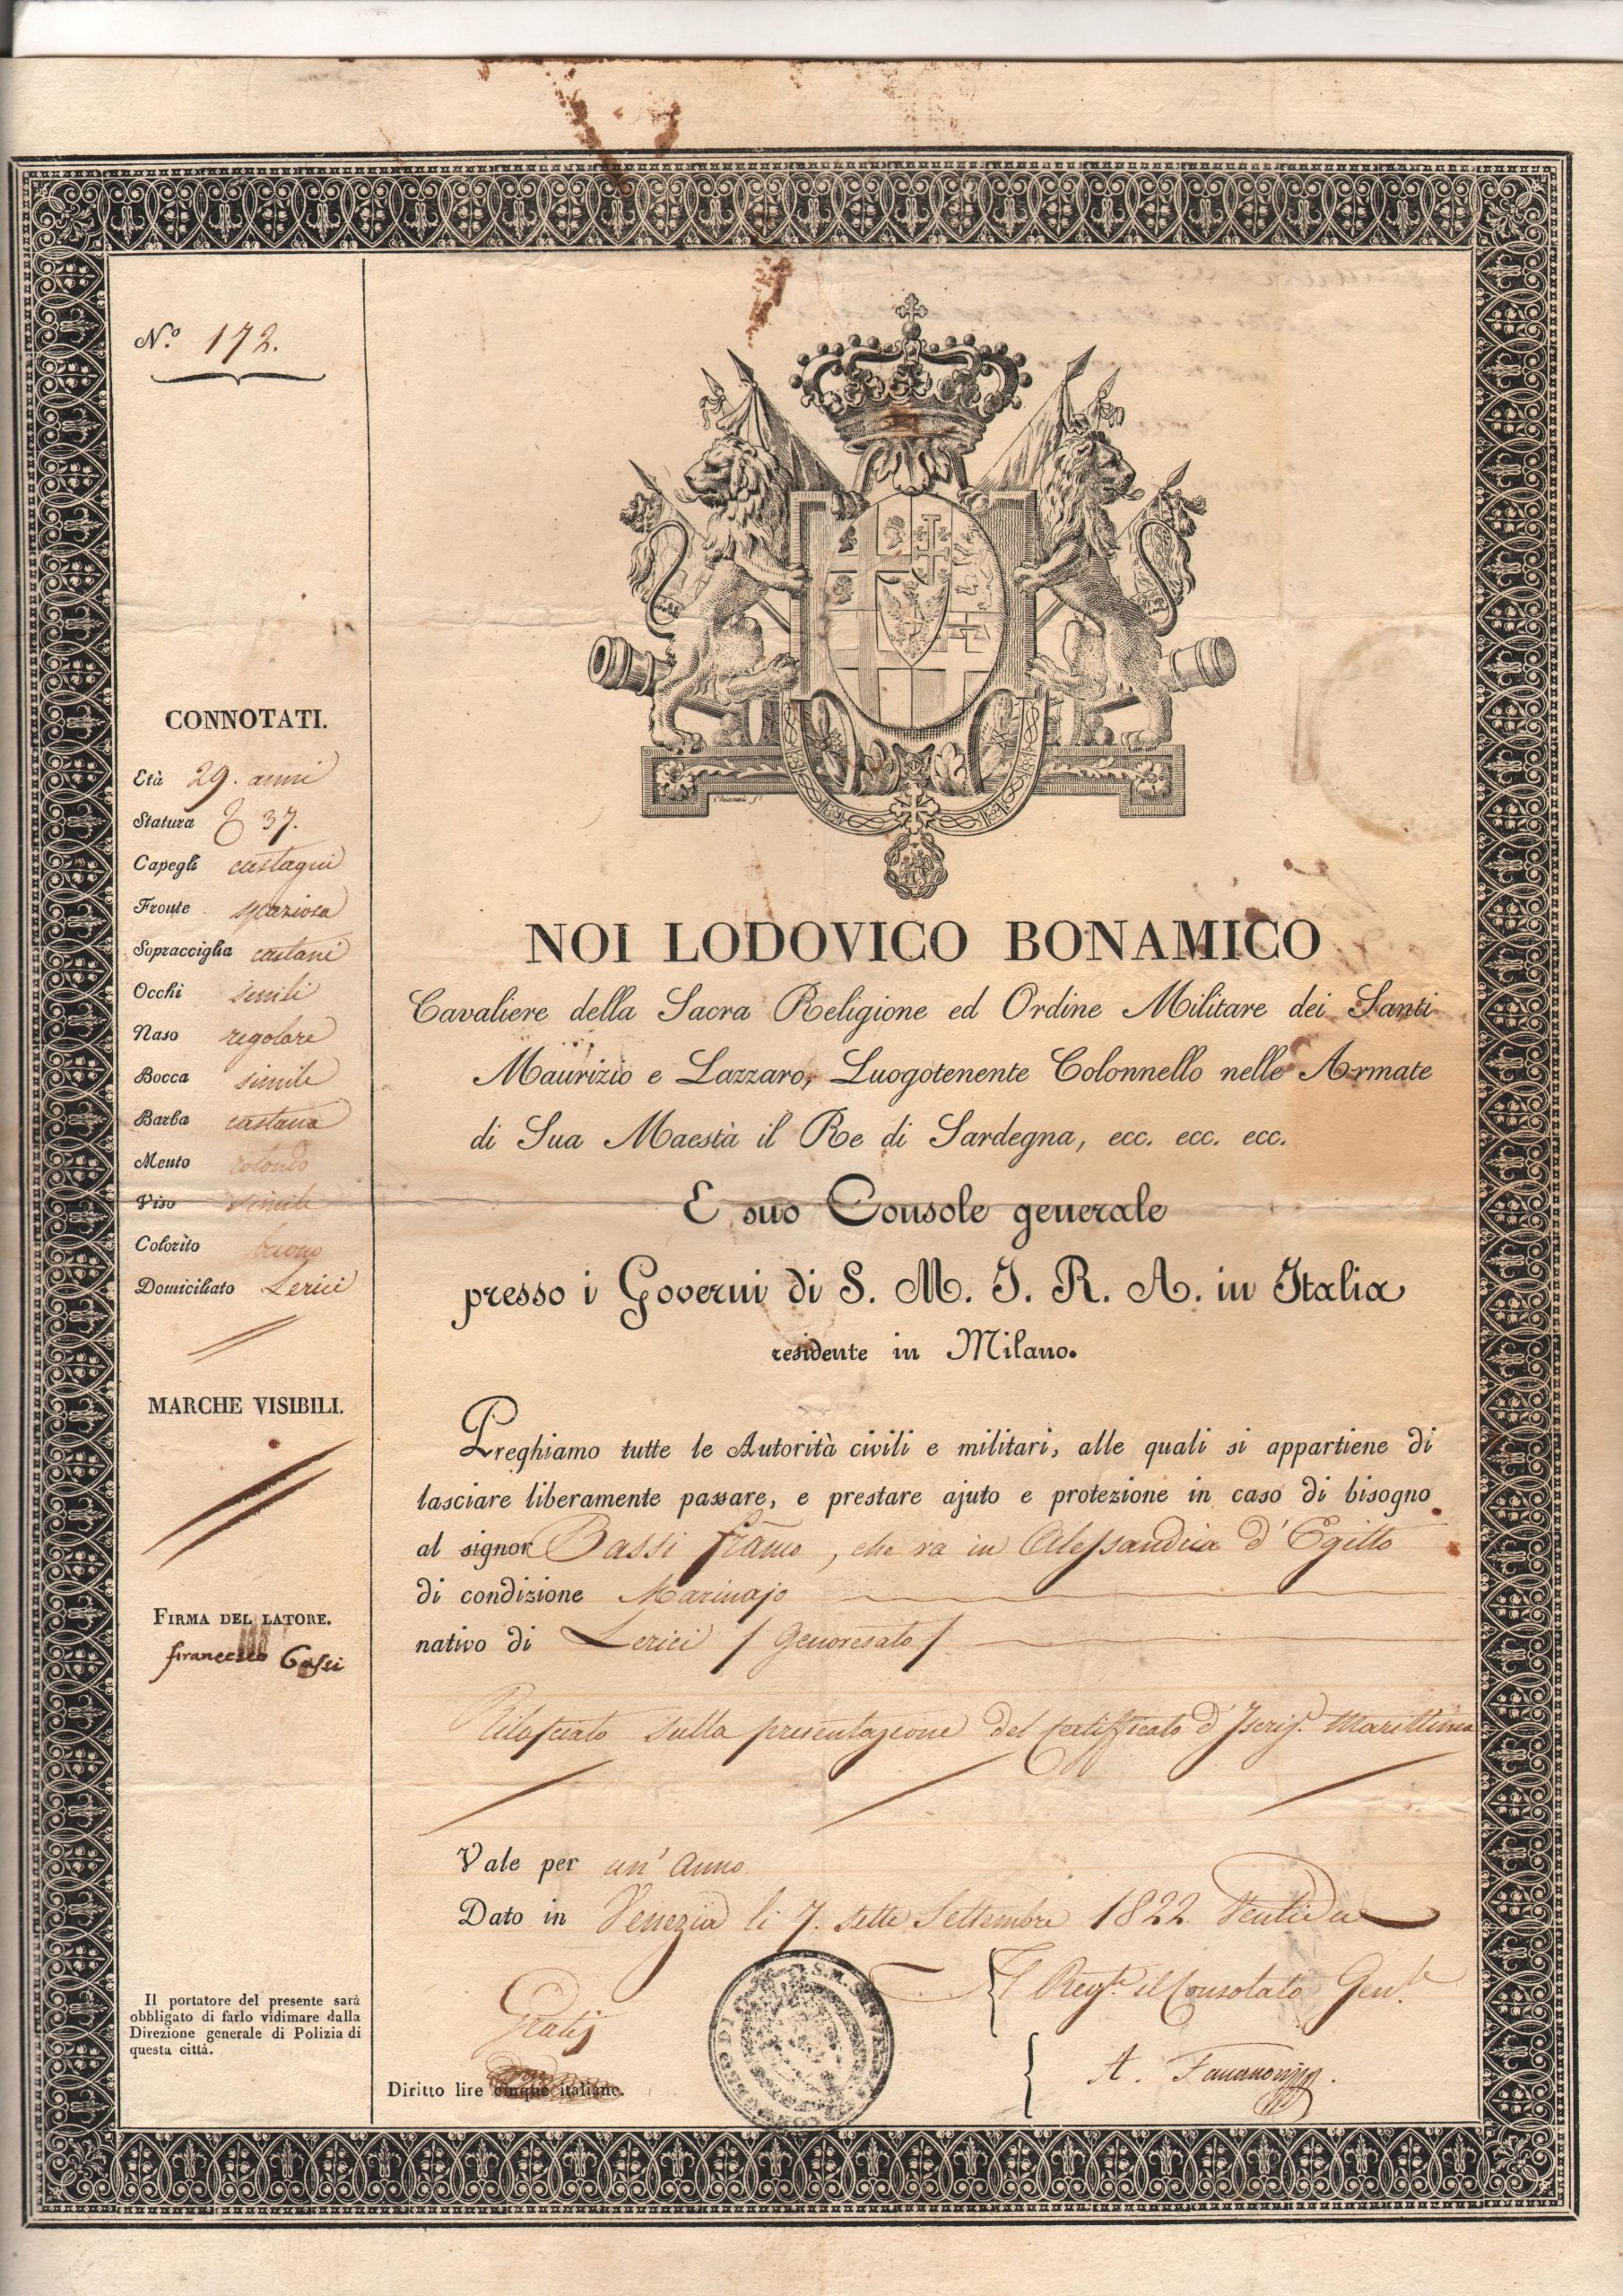 N.º 172.
CONNOTATI.
Età 29. anni
Statura 37.
Capegli castagni
Fronte spaziosa
Sopracciglia castani
Occhi simili
Naso regolare
Bocca simile
Barba castana
Mento rotondo
Viso simile
Colorito buono
Domiciliato Lerici
MARCHE VISIBILI.
FIRMA DEL LATORE.
francesco Bassi
Il portatore del presente sarà
obbligato di farlo vidimare dalla
Direzione generale di Polizia di
questa città.
NOI LODOVICO BONAMICO
Cavaliere della Sacra Religione ed Ordine Militare dei Santi
Maurizio e Lazzaro, Luogotenente Colonnello nelle Armate
di Sua Maestà il Re di Sardegna, ecc. ecc. ecc.
E suo Console generale
presso i Governi di S. M. I. R. A. in Italia
residente in Milano.
Preghiamo tutte le Autorità civili e militari, alle quali si appartiene di
lasciare liberamente passare, e prestare ajuto e protezione in caso di bisogno
al signor Bassi , che va in Alessandria d'Egitto
di condizione Marinajo
nativo di Lerici / Genovesato /
Rilasciato sulla presentazione del certificato d'Iscriz. Marittima
Vale per un' Anno
Dato in Venezia li 7. sette Settembre 1822 Ventidue
Il Regte. il Consolato Genle.
Gratis
A.
Diritto lire cinque italiane.